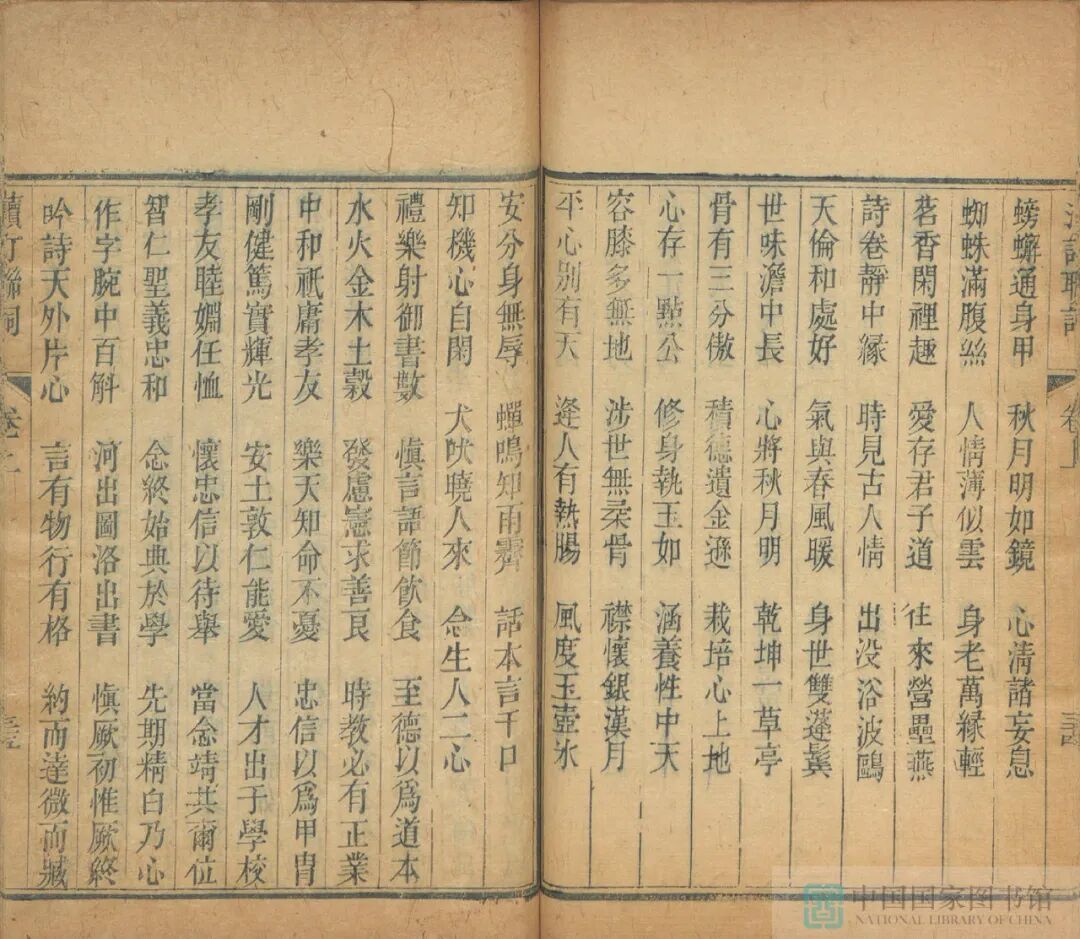 螃蠏通身甲　秋月明如鏡　心清諸妄息
蜘蛛滿腹絲　人情薄似雲　身老萬緣輕
茗香閑裡趣　愛存君子道　往來營壘燕
詩卷靜中緣　時見古人情　出没浴波鷗
天倫和處好　氣與春風暖　身世雙蓬鬢
世味澹中長　心將秋月明　乾坤一草亭
骨有三分傲　積德遺金遜　栽培心上地
心存一點公　修身執玉如　涵養性中天
容膝多無地　涉世無柔骨　襟懷銀漢月
平心别有天　逢人有熱腸　風度玉壺冰
安分身無辱　蟬鳴知雨霽　話本言千口
知機心自閑　犬吠曉人來　念生人二心
禮樂射御書數　慎言語節飲食　至德以為道本
水火金木土穀　發慮憲求善良　時教必有正業
中和祇庸孝友　樂天知命不憂　忠信以爲甲胄
剛健篤實輝光　安土敦仁能愛　人才出于學校
孝友睦婣任恤　懷忠信以待舉　當念靖共爾位
智仁聖義忠和　念終始典於學　先期精白乃心
作字腕中百斛　河出圖洛出書　慎厥初惟厥終
吟詩天外片心　言有物行有格　約而達微而臧
中国国家图书馆
NATIONAL LIBRARY OF CHINA